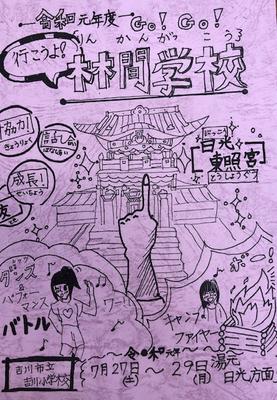 令和元年度 Go! Go!
行こうよ!
りん かん がっ こう
林間学校
協力!
きょうりょく
成長!
せいちょう
にっこう
日光
東照宮
とうしょうぐう
ダンス
&
パフォー
マンス
バトル
ワーッ!
キャンプ
ファイヤー
令和元年
吉川市立
吉川小学校
7月27日~29日
(土) (月)
湯元
日光方面